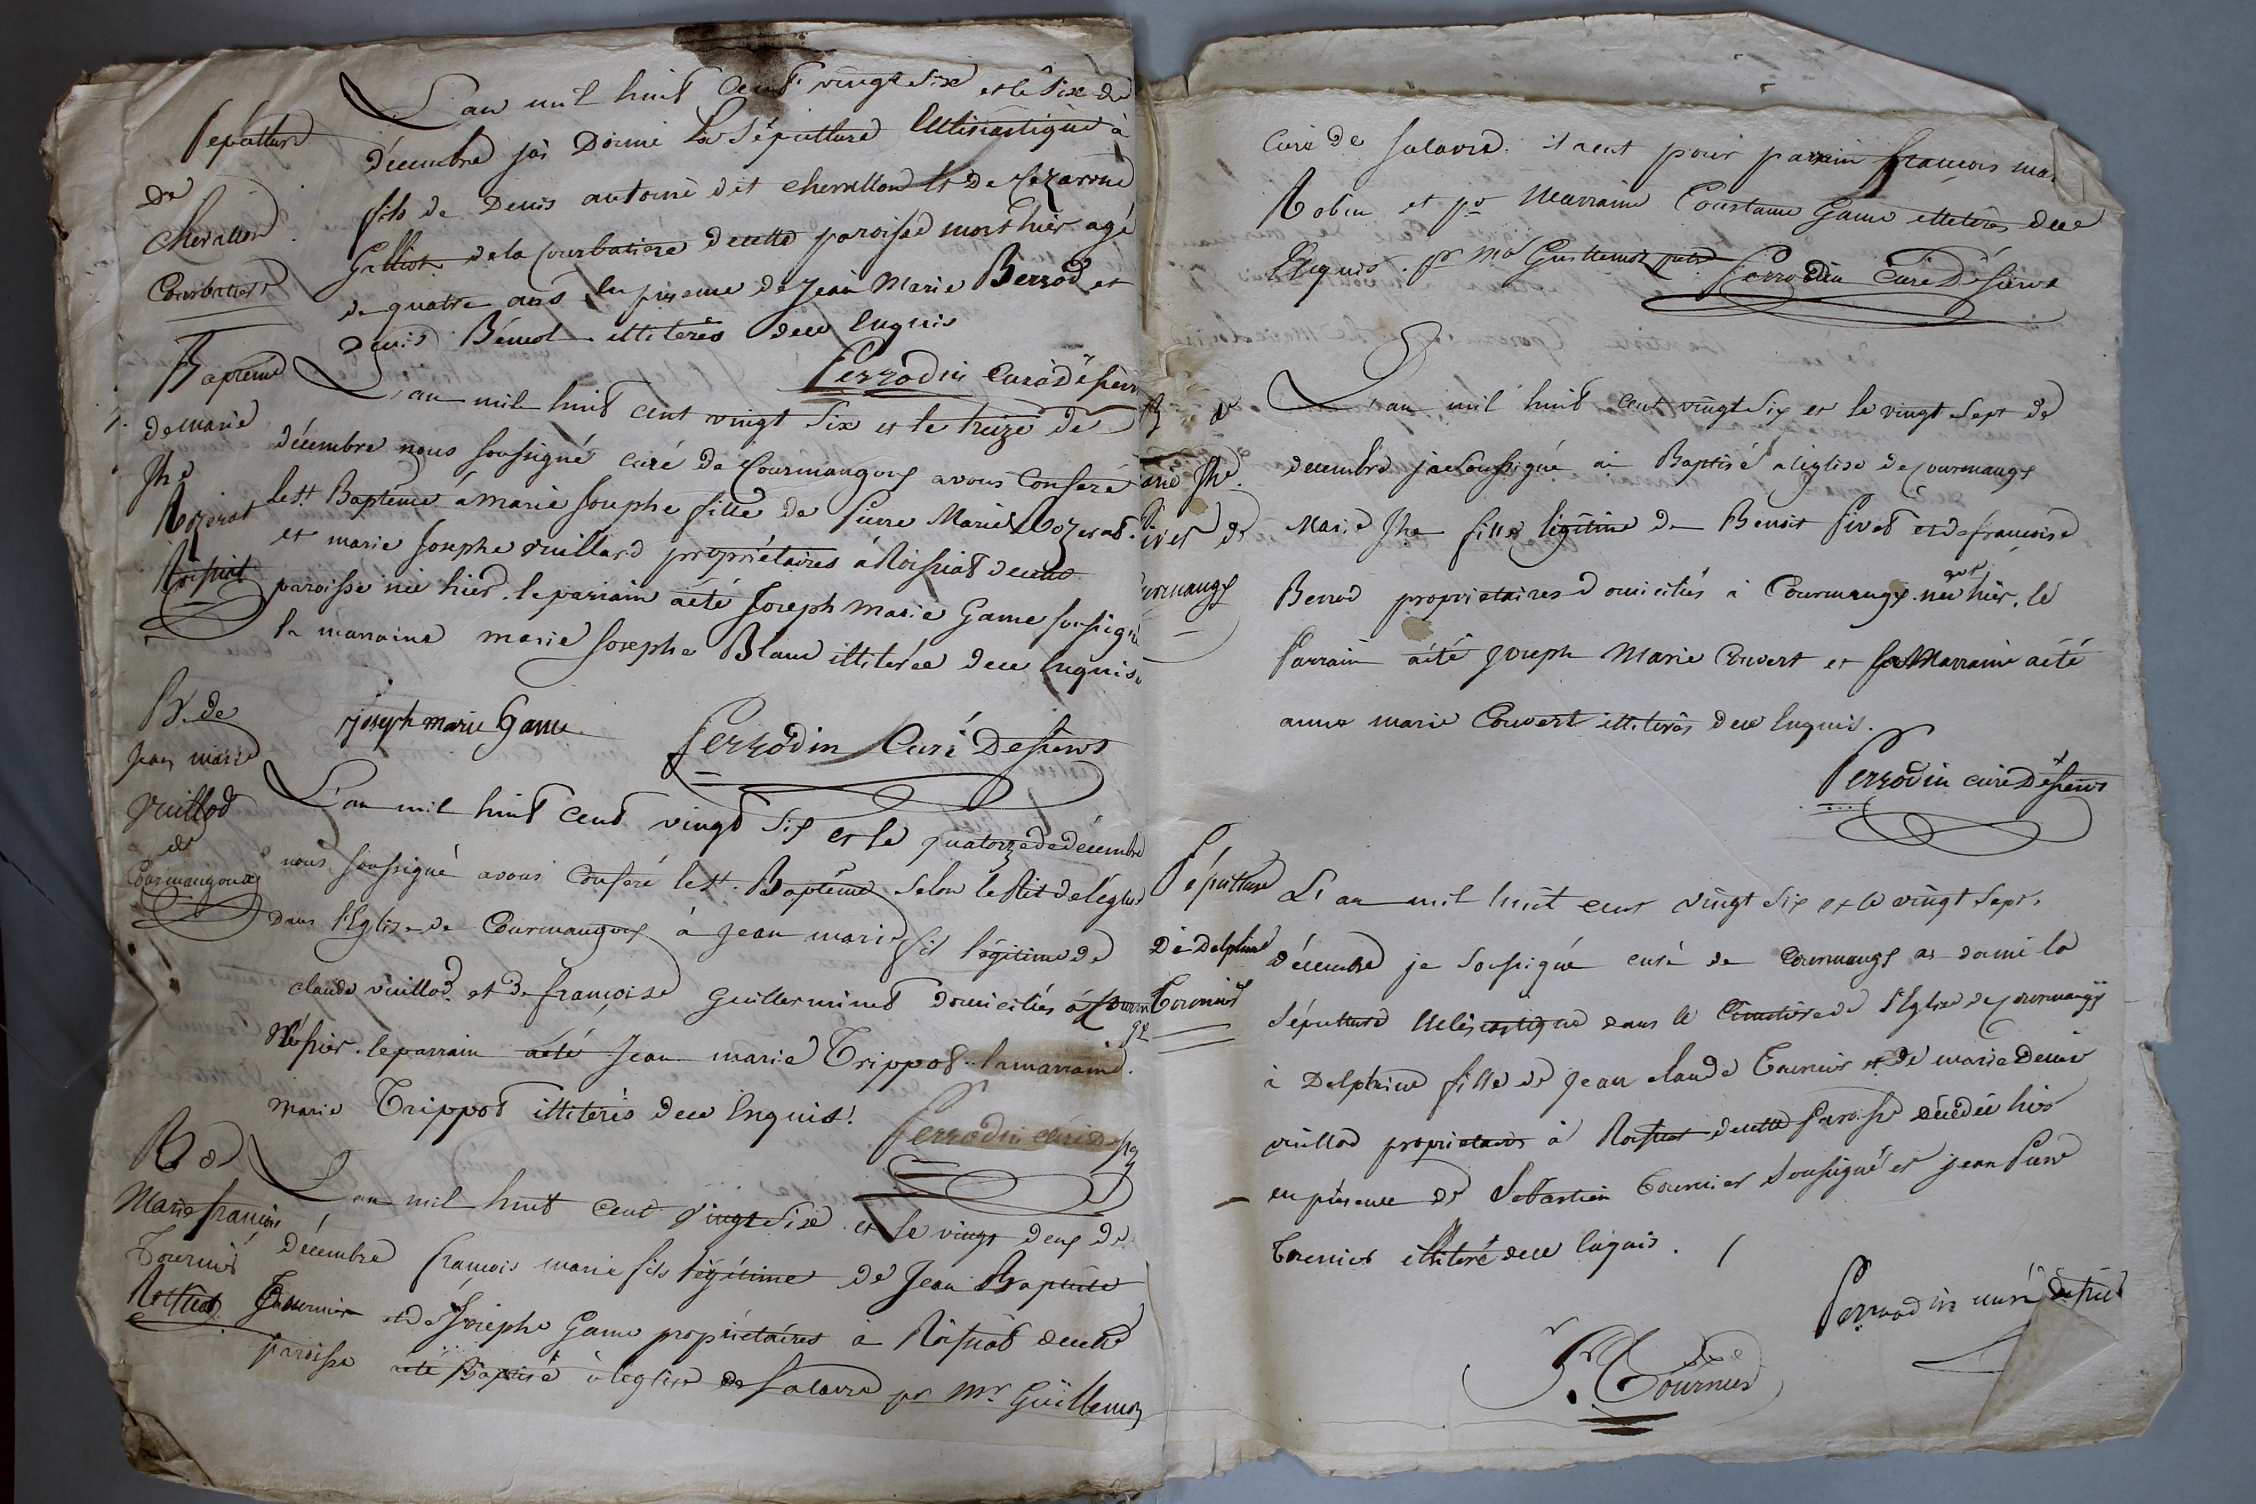 Sépulture
de
Chevallon
Courbatiere
L'an mil huit cent vingt Six et le Six de
décembre j'ai Donné La Sépulture Ecclésiastique à
fils de Denis antoine dit chevallon et De
Galliot de la Courbatiere de cette paroisse mort hier agé
de quatre ans En presence de Jean Marie Berrod et
Denis Bénoit illiterés de ce Enquis
Perrodin Curé
Baptême
de marie
Jhe
Rozerat
Roissiat
L'an mil huit cent vingt Six et le treize de
décembre nous soussigné curé de Courmangoux avons Conferé
le St Baptême à marie Josephe fille de Pierre Marie Rozerat
et marie Josephe vuillard propriétaires à Roissiat de cette
paroisse née hier. le parrain a été Joseph Marie Game soussigné
la marraine marie Josephe Blanc illiterée de ce Enquise
joseph marie Game
Perrodin Curé
B. de
Jean marie
vuillod
de
Courmangoux
L'an mil huit cent vingt Six et le quatorze de décembre
nous soussigné avons Conferé le St. Baptême Selon le Rit de l'église
Dans l'Eglise de Courmangoux à Jean marie fils légitime de
claude vuillod et de françoise Guillerminet domiciliés à
Né hier. le parrain a été Jean marie Trippoz la marraine
Marie Trippoz illiterés de ce Enquis.
Perrodin curé
B de
Marie françois
Tournier
Roissiat
L'an mil huit cent vingt Six et le vingt deux de
décembre françois marie fils légitime de Jean Baptiste
Tournier et de Josephe Game propriétaires à Roissiat de cette
paroisse a été Baptisé à l'eglise de Salavre pr Mr Guillemin
curé de Salavre. il a eut pour parain françois
Robin et pr Marraine Constance Game illiterés de ce
Enquis.
Perrodin Curé
arie Jhe.
ivet de
ourmangx
L'an mil huit cent vingt Six et le vingt Sept de
decembre je soussigné ai Baptisé a l'église de Courmangx
Marie Jhe fille légitime de Benoit Pivet et de françoise
Berrod proprietaires Domiciliés à Courmangx. née hier. le
Parrain a été Joseph Marie Convert et la Marraine a été
anne marie Convert illiterés de ce Enquis.
Perrodin curé
Sépulture
De Delphine
Tournier
L'an mil huit cent vingt Six et le vingt Sept
décembre je soussigné curé de Courmangx ai donné la
Sépulture Ecclésiastique dans le Cimetière de l'Eglise de Courmangx
à Delphine fille de Jean claude Tournier et de marie Denise
vuillod proprietaires à Roissiat de cette Paroisse décédée hier
en présence de Sébastien Tournier Soussigné et jean Pierre
Tournier illiteré de ce Enquis.
Perrodin curé
S. Tournier